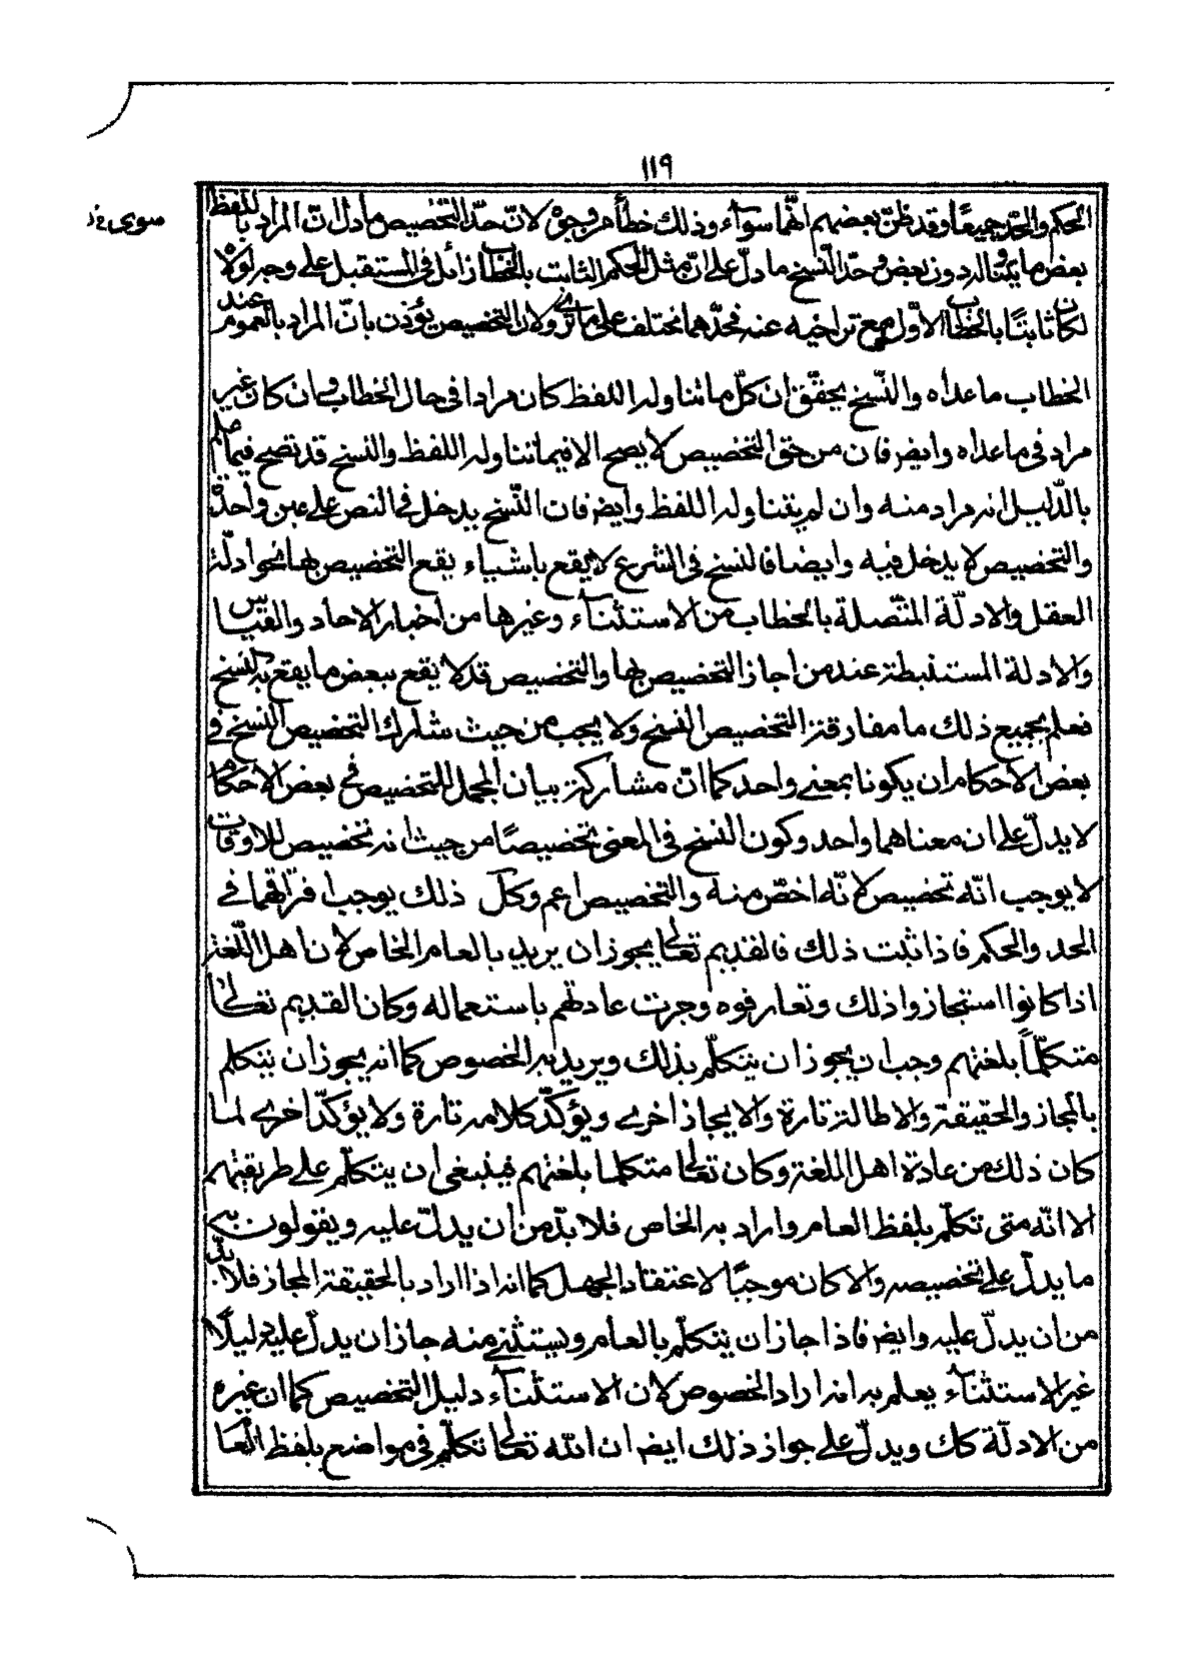 ١١٩
الحكم والحدّ جميعًا وقد ظنّ بعضهم انّهما سوآء وذلك خطأ من وجوه لانّ حدّ التخصيص ما دلّ انّ المراد باللفظ
سوى خ‍
بعض ما يتناوله دون بعض وحدّ النّسخ ما دلّ على انّ مثل الحكم الثابت بالخطاب زائل فى المستقبل على وجه لولاه
لكان ثابتًا بالخطاب الاوّل مع تراخيه عنه فحدّهما مختلف على ما ترى ولان التخصيص يؤذن بانّ المراد بالعموم عند
الخطاب ما عداه والنّسخ يحقّق ان كلّ ما تناوله اللفظ كان مرادا فى حال الخطاب وان كان غير
مراد فى ما عداه وايض فان من حق التخصيص لا يصح الا فيما تناوله اللفظ والنسخ قد تصح فيما علم
بالدّليل انه مراد منه وان لم يتناوله اللفظ وايض فان النّسخ يدخل فى النص على عين واحدة
والتخصيص لا يدخل فيه وايضا فالنسخ فى الشرع لا يقع باشياء يقع التخصيص بها نحو ادلّة
العقل والادلّة المتّصلة بالخطاب من الاستثنآء وغيرها من اخبار الاحاد والقياس
والادلة المستنبطة عند من اجاز التخصيص بها والتخصيص قد لا يقع ببعض ما يقع به النسخ
نعلم بجميع ذلك ما مفارقة التخصيص النسخ ولا يجب من حيث شارك التخصيص النسخ فى
بعض الاحكام ان يكونا بمعنى واحد كما انّ مشاركة بيان المجمل للتخصيص فى بعض الاحكام
لا يدلّ على ان معناهما واحد وكون النسخ فى المعنى تخصيصًا من حيث انه تخصيص للاوقات
لا يوجب انّه تخصيص لانّه اخصّ منه والتخصيص اعم وكلّ ذلك يوجب افتراقهما فى
الحد والحكم فاذا ثبت ذلك فالقديم تعالى يجوز ان يريد بالعام الخاص لان اهل اللّغة
اذا كانوا استجازوا ذلك وتعارفوه وجرت عادتهم باستعماله وكان القديم تعالى
متكلّمًا بلغتهم وجب ان يجوز ان يتكلّم بذلك ويريد به الخصوص كما انه يجوز ان يتكلم
بالمجاز والحقيقة والاطالة تارة والايجاز اخرى ويؤكّد كلامه تارة ولا يؤكّد اخرى لما
كان ذلك من عادة اهل اللغة وكان تعالى متكلما بلغتهم فينبغى ان يتكلّم على طريقتهم
الا انّه متى تكلّم بلفظ العام واراد به الخاص فلا بدّ من ان يدلّ عليه ويقولون به
ما يدلّ على تخصيصه والا كان موجبًا لاعتقاد الجهل كما انه اذا اراد بالحقيقة المجاز فلا بدّ
من ان يدلّ عليه وايض فاذا جاز ان يتكلّم بالعام ويستثنى منه جاز ان يدلّ عليه دليلًا
غير الاستثنآء يعلم به انه اراد الخصوص لان الاستثنآء دليل التخصيص كما ان غيره
من الادلّة كك ويدلّ على جواز ذلك ايض ان اللّه تعالى تكلّم فى مواضع بلفظ العا